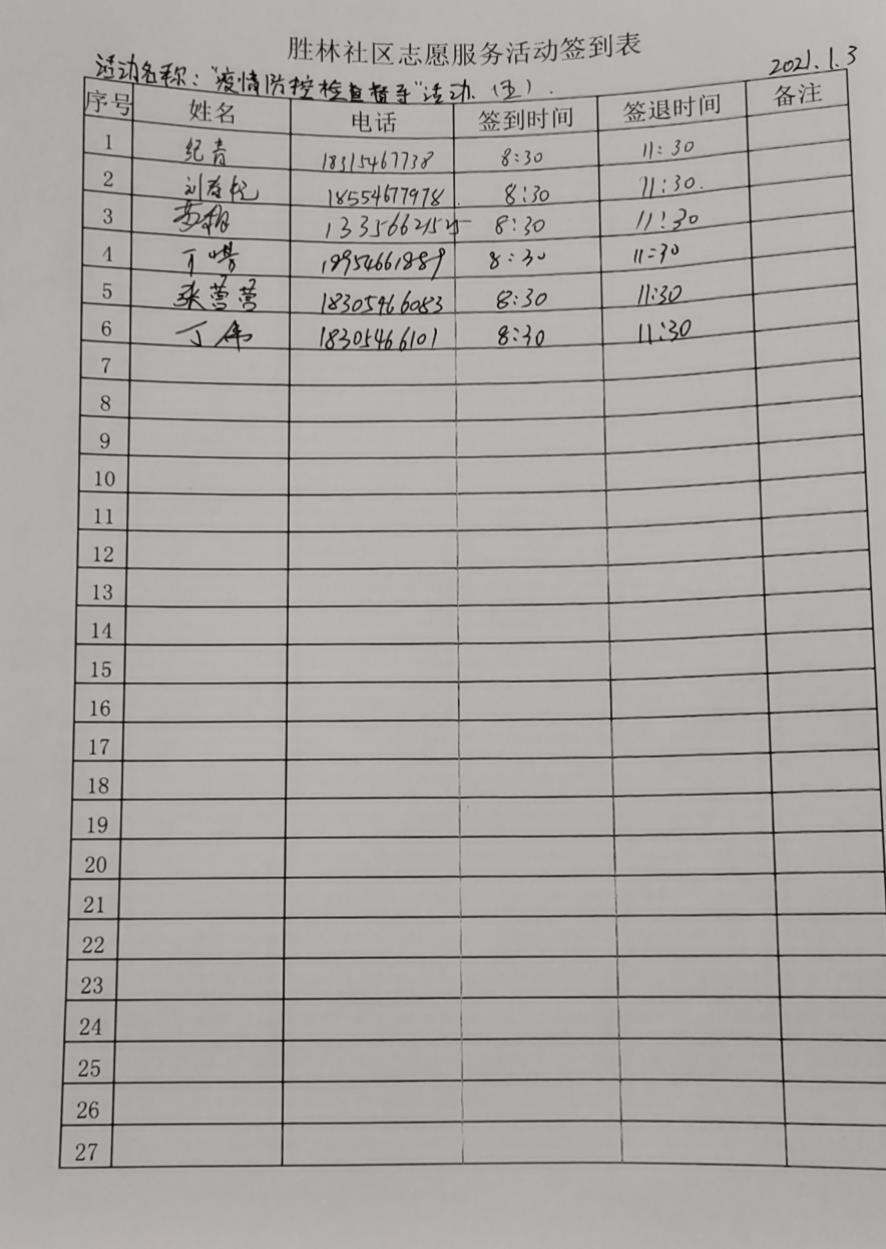 胜林社区志愿服务活动签到表
2021.1.3
活动名称："疫情防控检查督导"活动.（五）.
序号 姓名 电话 签到时间 签退时间 备注
1 纪青 18315467738 8:30 11:30
2 18554677978 8:30 11:30.
3 8:30 11:30
4 8:30 11:30
5 张莹莹 18305466083 8:30 11:30
6 丁伟 18305466101 8:30 11:30
7
8
9
10
11
12
13
14
15
16
17
18
19
20
21
22
23
24
25
26
27